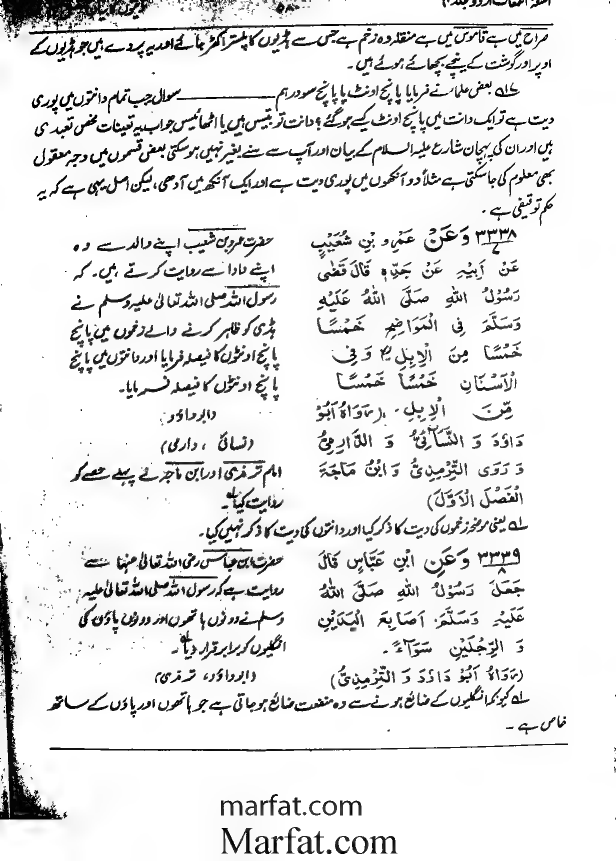 صراح میں ہے قاموس میں ہے منقلہ وہ زخم ہے جس سے ہڈیوں کا پلستر اکھڑ جائے اور یہ پردے ہیں جو ہڈیوں کے
اوپر اور گوشت کے نیچے بچھائے ہوئے ہیں۔
بعض علماء نے فرمایا پانچ اونٹ یا پانچ سو درہم ـــــ سوال جب تمام دانتوں میں پوری
دیت ہے تو ایک دانت میں پانچ اونٹ کیسے ہو گئے؟ دانت تو بتیس ہیں یا اٹھائیس جواب یہ تعینات محض تعبدی
ہیں اور ان کی پہچان شارع علیہ السلام کے بیان اور آپ سے سنے بغیر نہیں ہو سکتی بعض قسموں میں وجہ معقول
بھی معلوم کی جا سکتی ہے مثلاً دو آنکھوں میں پوری دیت ہے اور ایک آنکھ میں آدھی، لیکن اصل یہی ہے کہ یہ
حکم توقیفی ہے۔
۳۳۳۸ وَعَنْ عَمْرِو بْنِ شُعَيْبٍ
عَنْ اَبِيْهِ عَنْ جَدِّهٖ قَالَ قَضٰى
رَسُوْلُ اللهِ صَلَّى اللهُ عَلَيْهِ
وَسَلَّمَ فِى الْمَوَاضِحِ خَمْسًا
خَمْسًا مِنَ الْاِبِلِ وَفِى
الْاَسْنَانِ خَمْسًا خَمْسًا
مِّنَ الْاِبِلِ۔ (رَوَاهُ اَبُوْ
دَاوٗدَ وَ النَّسَآئِىُّ وَ الدَّارِمِىُّ
وَ رَوَى التِّرْمِذِىُّ وَ ابْنُ مَاجَةَ
الْفَصْلَ الْاَوَّلَ)
حضرت عمرو بن شعیب اپنے والد سے وہ
اپنے دادا سے روایت کرتے ہیں۔ کہ
رسول اللہ صلی اللہ تعالیٰ علیہ وسلم نے
ہڈی کو ظاہر کرنے والے زخموں میں پانچ
پانچ اونٹوں کا فیصلہ فرمایا اور دانتوں میں پانچ
پانچ اونٹوں کا فیصلہ فرمایا۔
(ابوداؤد
(نسائی، دارمی)
امام ترمذی اور ابن ماجہ نے پہلے حصے کو
روایت کیا۔
۱ یعنی موضحہ زخموں کی دیت کا ذکر کیا اور دانتوں کی دیت کا ذکر نہیں کیا۔
۳۳۳۹ وَعَنِ ابْنِ عَبَّاسٍ قَالَ
۸
جَعَلَ رَسُوْلُ اللهِ صَلَّى اللهُ
عَلَيْهِ وَسَلَّمَ اَصَابِعَ الْيَدَيْنِ
وَ الرِّجْلَيْنِ سَوَآءً۔
(رَوَاهُ اَبُوْ دَاوٗدَ وَ التِّرْمِذِىُّ)
حضرت ابن عباس رضی اللہ تعالیٰ عنہما سے
روایت ہے کہ رسول اللہ صلی اللہ تعالیٰ علیہ
وسلم نے دونوں ہاتھوں اور دونوں پاؤں کی
انگلیوں کو برابر قرار دیا۔
(ابوداؤد، ترمذی)
۱ کیونکہ انگلیوں کے ضائع ہونے سے وہ منفعت ضائع ہو جاتی ہے جو ہاتھوں اور پاؤں کے ساتھ
خاص ہے۔
marfat.com
Marfat.com